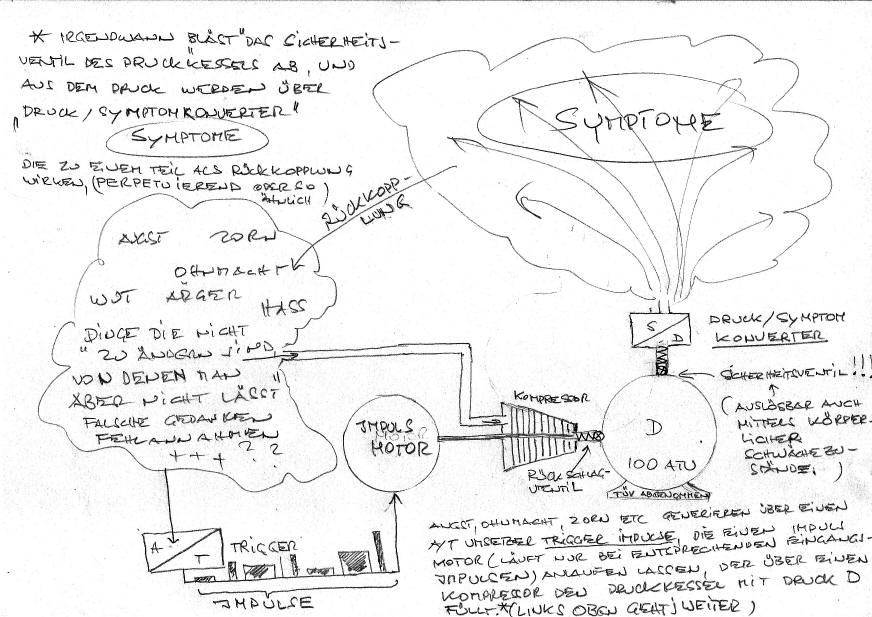 * IRGENDWANN "BLÄST" DAS SICHERHEITS-
VENTIL DES DRUCKKESSELS AB, UND
AUS DEM DRUCK WERDEN ÜBER
"DRUCK/SYMPTOMKONVERTER"
SYMPTOME
DIE ZU EINEM TEIL ALS RÜCKKOPPLUNG
WIRKEN, (PERPETUIEREND ODER SO
ÄHNLICH)
SYMPTOME
RÜCKKOPP-
LUNG
ANGST ZORN
OHNMACHT
WUT ÄRGER
HASS
DINGE DIE NICHT
"ZU ÄNDERN SIND,
VON DENEN MAN
ABER NICHT LÄSST"
FALSCHE GEDANKEN
FEHLANNAHMEN
+ + + ? ?
S
D
DRUCK/SYMPTOM
KONVERTER
SICHERHEITSVENTIL!!!
(AUSLÖSBAR AUCH
MITTELS KÖRPER-
LICHER
SCHWÄCHEZU-
STÄNDE.)
KOMPRESSOR
IMPULS
MOTOR
D
100 ATU
RÜCKSCHLAG-
VENTIL
TÜV ABGENOMMEN
A
T
TRIGGER
IMPULSE
ANGST, OHNMACHT, ZORN ETC GENERIEREN ÜBER EINEN
A/T UMSETZER TRIGGER IMPULSE, DIE EINEN IMPULS
MOTOR (LÄUFT NUR BEI ENTSPRECHENDEN EINGANGS-
IMPULSEN) ANLAUFEN LASSEN, DER ÜBER EINEN
KOMPRESSOR DEN DRUCKKESSEL MIT DRUCK D
FÜLLT.* (LINKS OBEN GEHTJ WEITER)